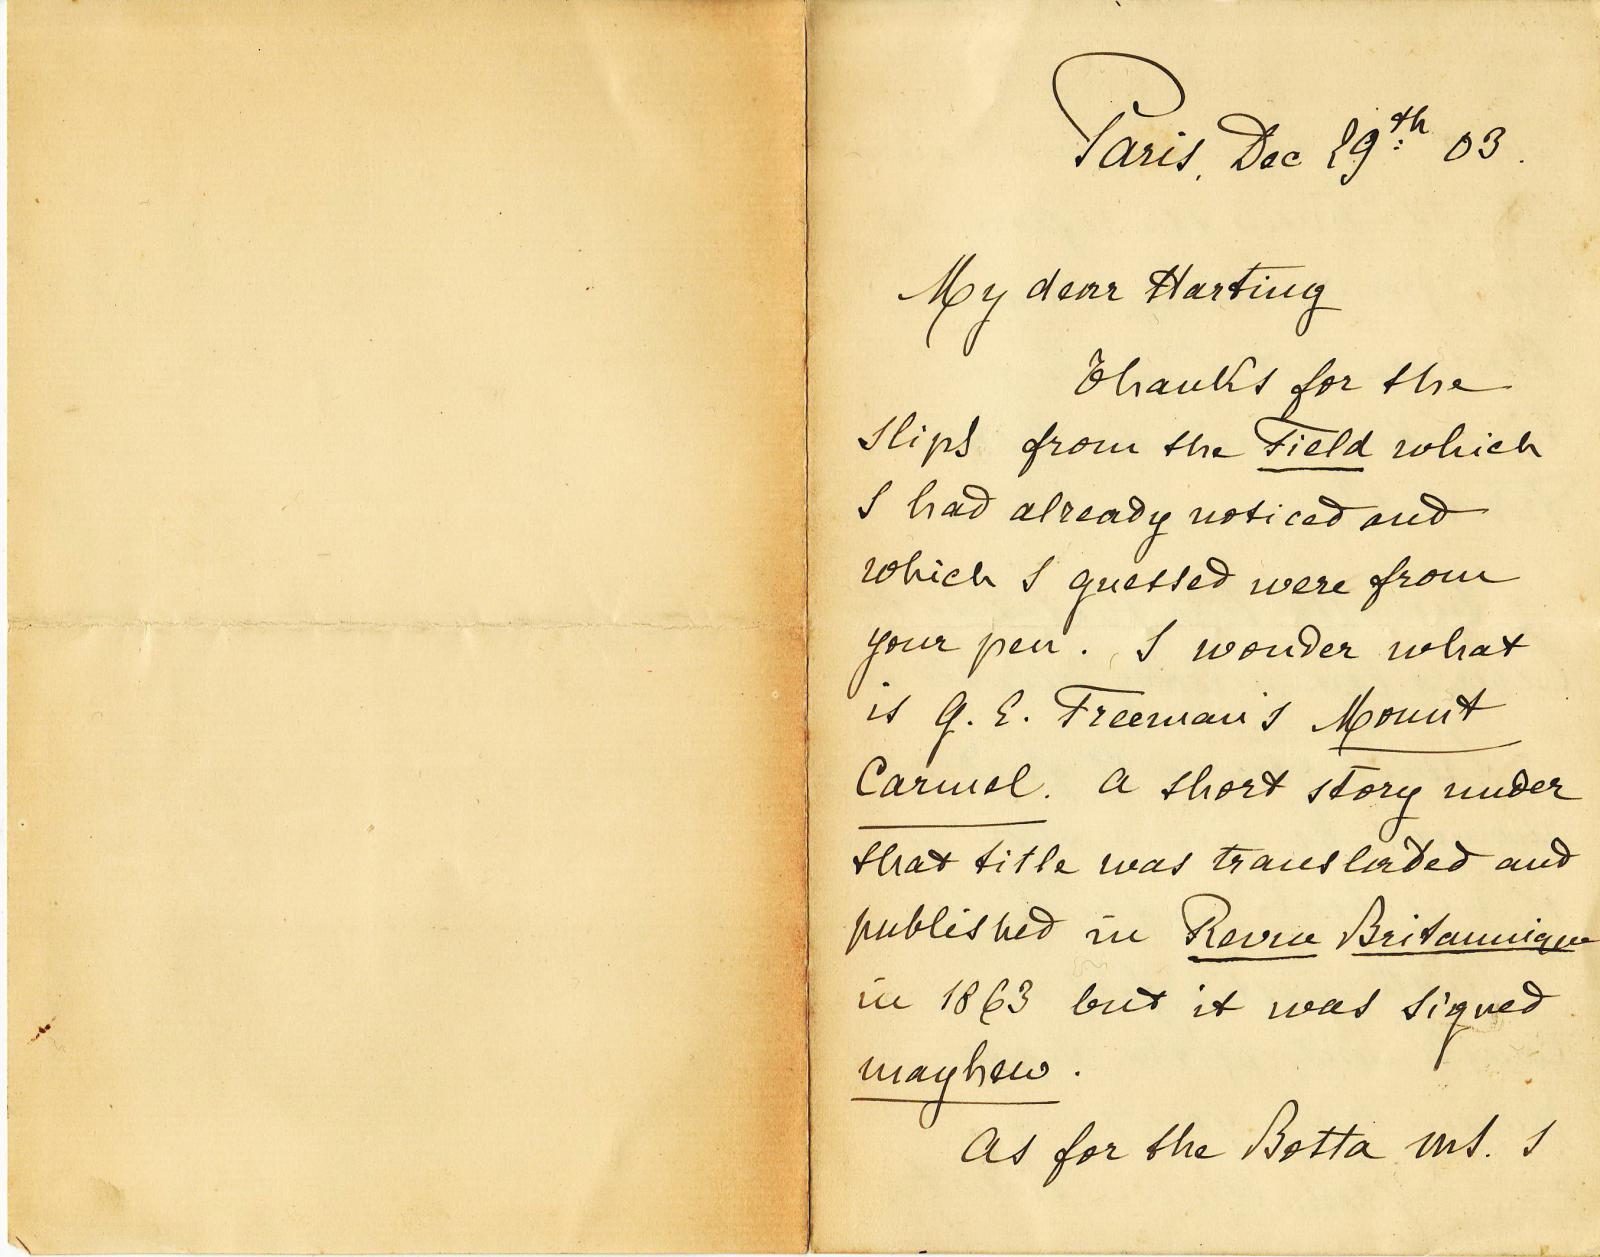 Paris, Dec 29th 03.
My dear Harting
Thanks for the
slips from the Field which
I had already noticed and
which I guessed were from
your pen. I wonder what
is G. E. Freeman's Mount
Carmel. A short story under
that title was translated and
published in Revue Britannique
in 1863 but it was signed
mayhew.
As for the Botta ms. I